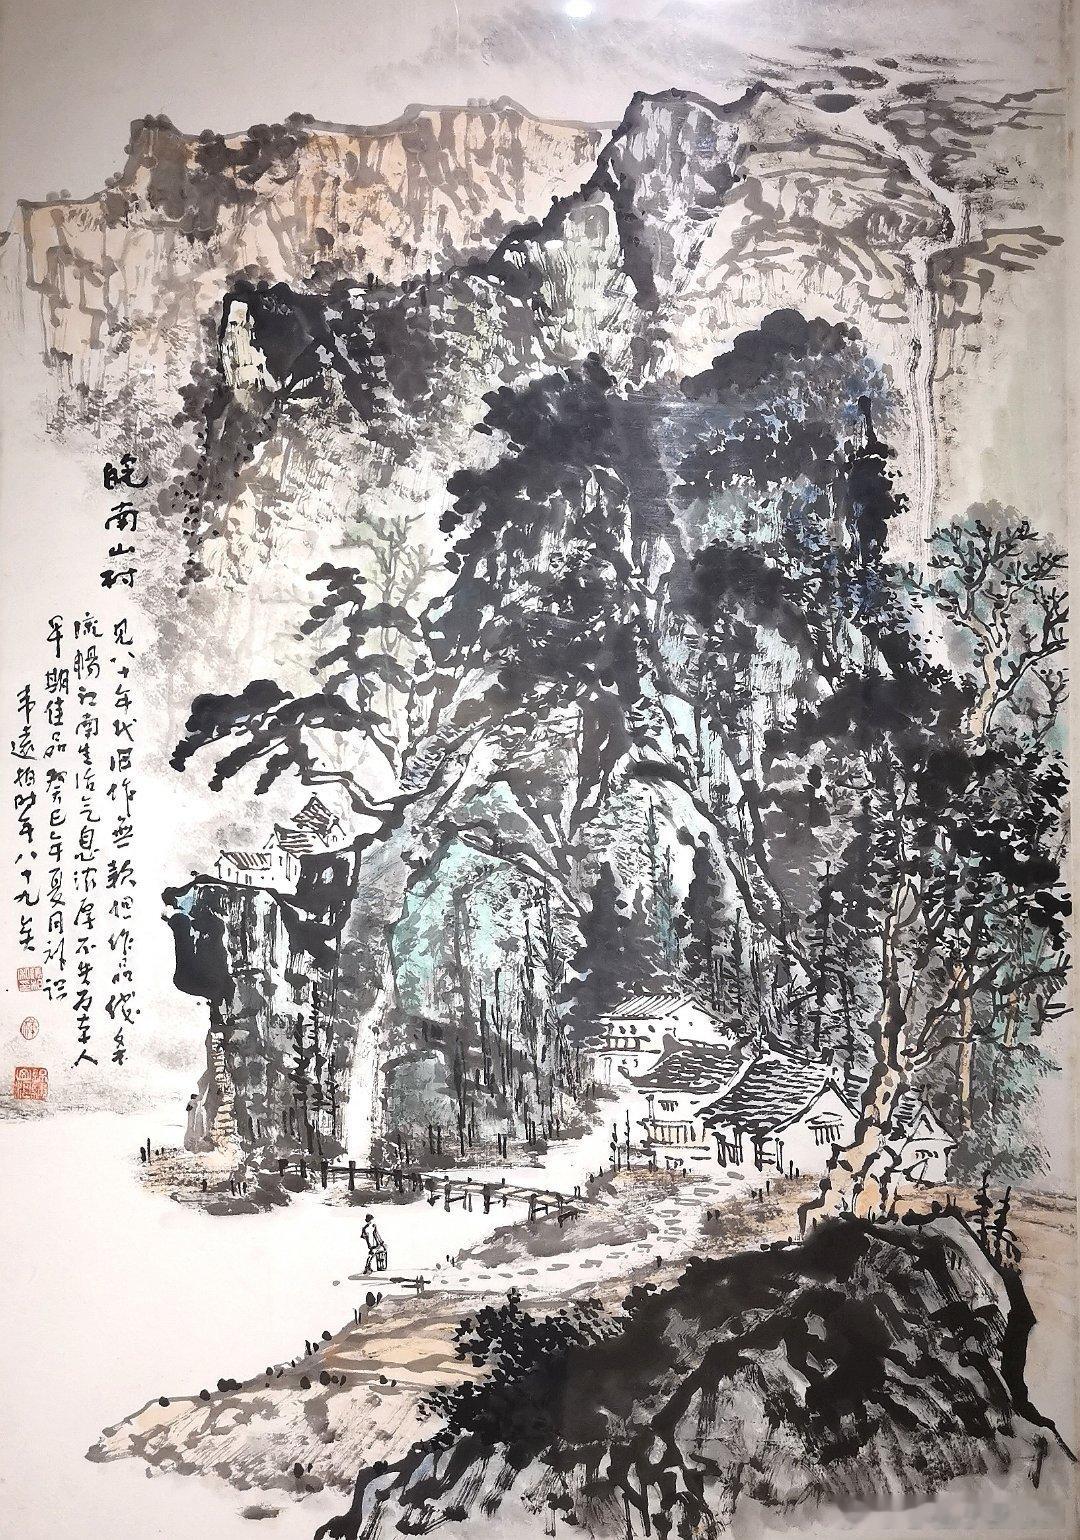 皖南山村
见八十年代旧作無款但作品线条
流暢江南生活气息浓厚不失为本人
早期佳品癸巳年夏月补识
韦遠柏时年八十九矣